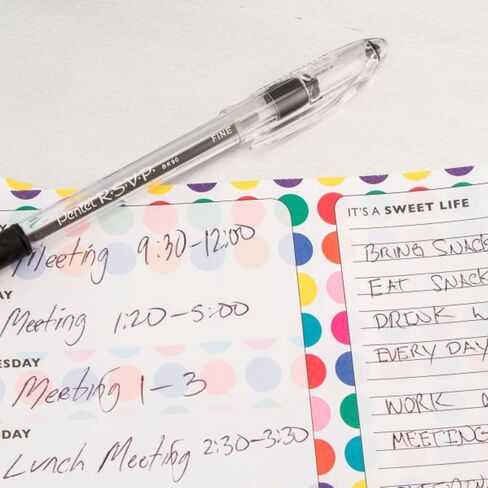 Pentel R.S.V.P. BK90 FINE
Meeting 9:30-12:00
AY
Meeting 1:20-5:00
ESDAY
Meeting 1-3
DAY
Lunch Meeting 2:30-3:30
IT'S A SWEET LIFE
BRING SNACK
EAT SNACK
DRINK W
EVERY DAY
WORK
MEETING